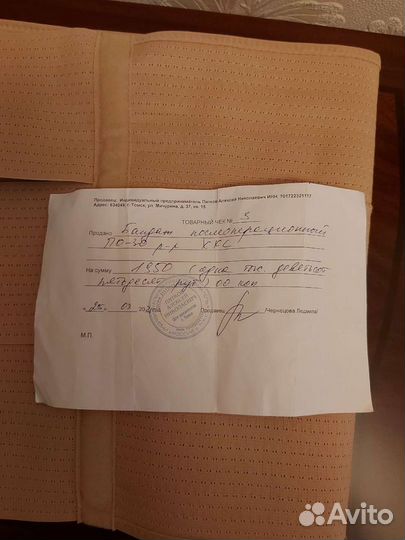 Продавец: Индивидуальный предприниматель Алексей Николаевич ИНН: 701722321117
Адрес: 634049, г. Томск, ул. Мичурина, д. 37, кв. 15
ТОВАРНЫЙ ЧЕК № 3
Продано Бандаж послеоперационный
ПО-30 р-р XXL
На сумму 1950 (одна тыс. девятьсот
пятьдесят руб) 00 коп
«25» 03 Продавец /Чернецова Людмила/
М.П.
АЛЕКСЕЙ
НИКОЛАЕВИЧ
Avito